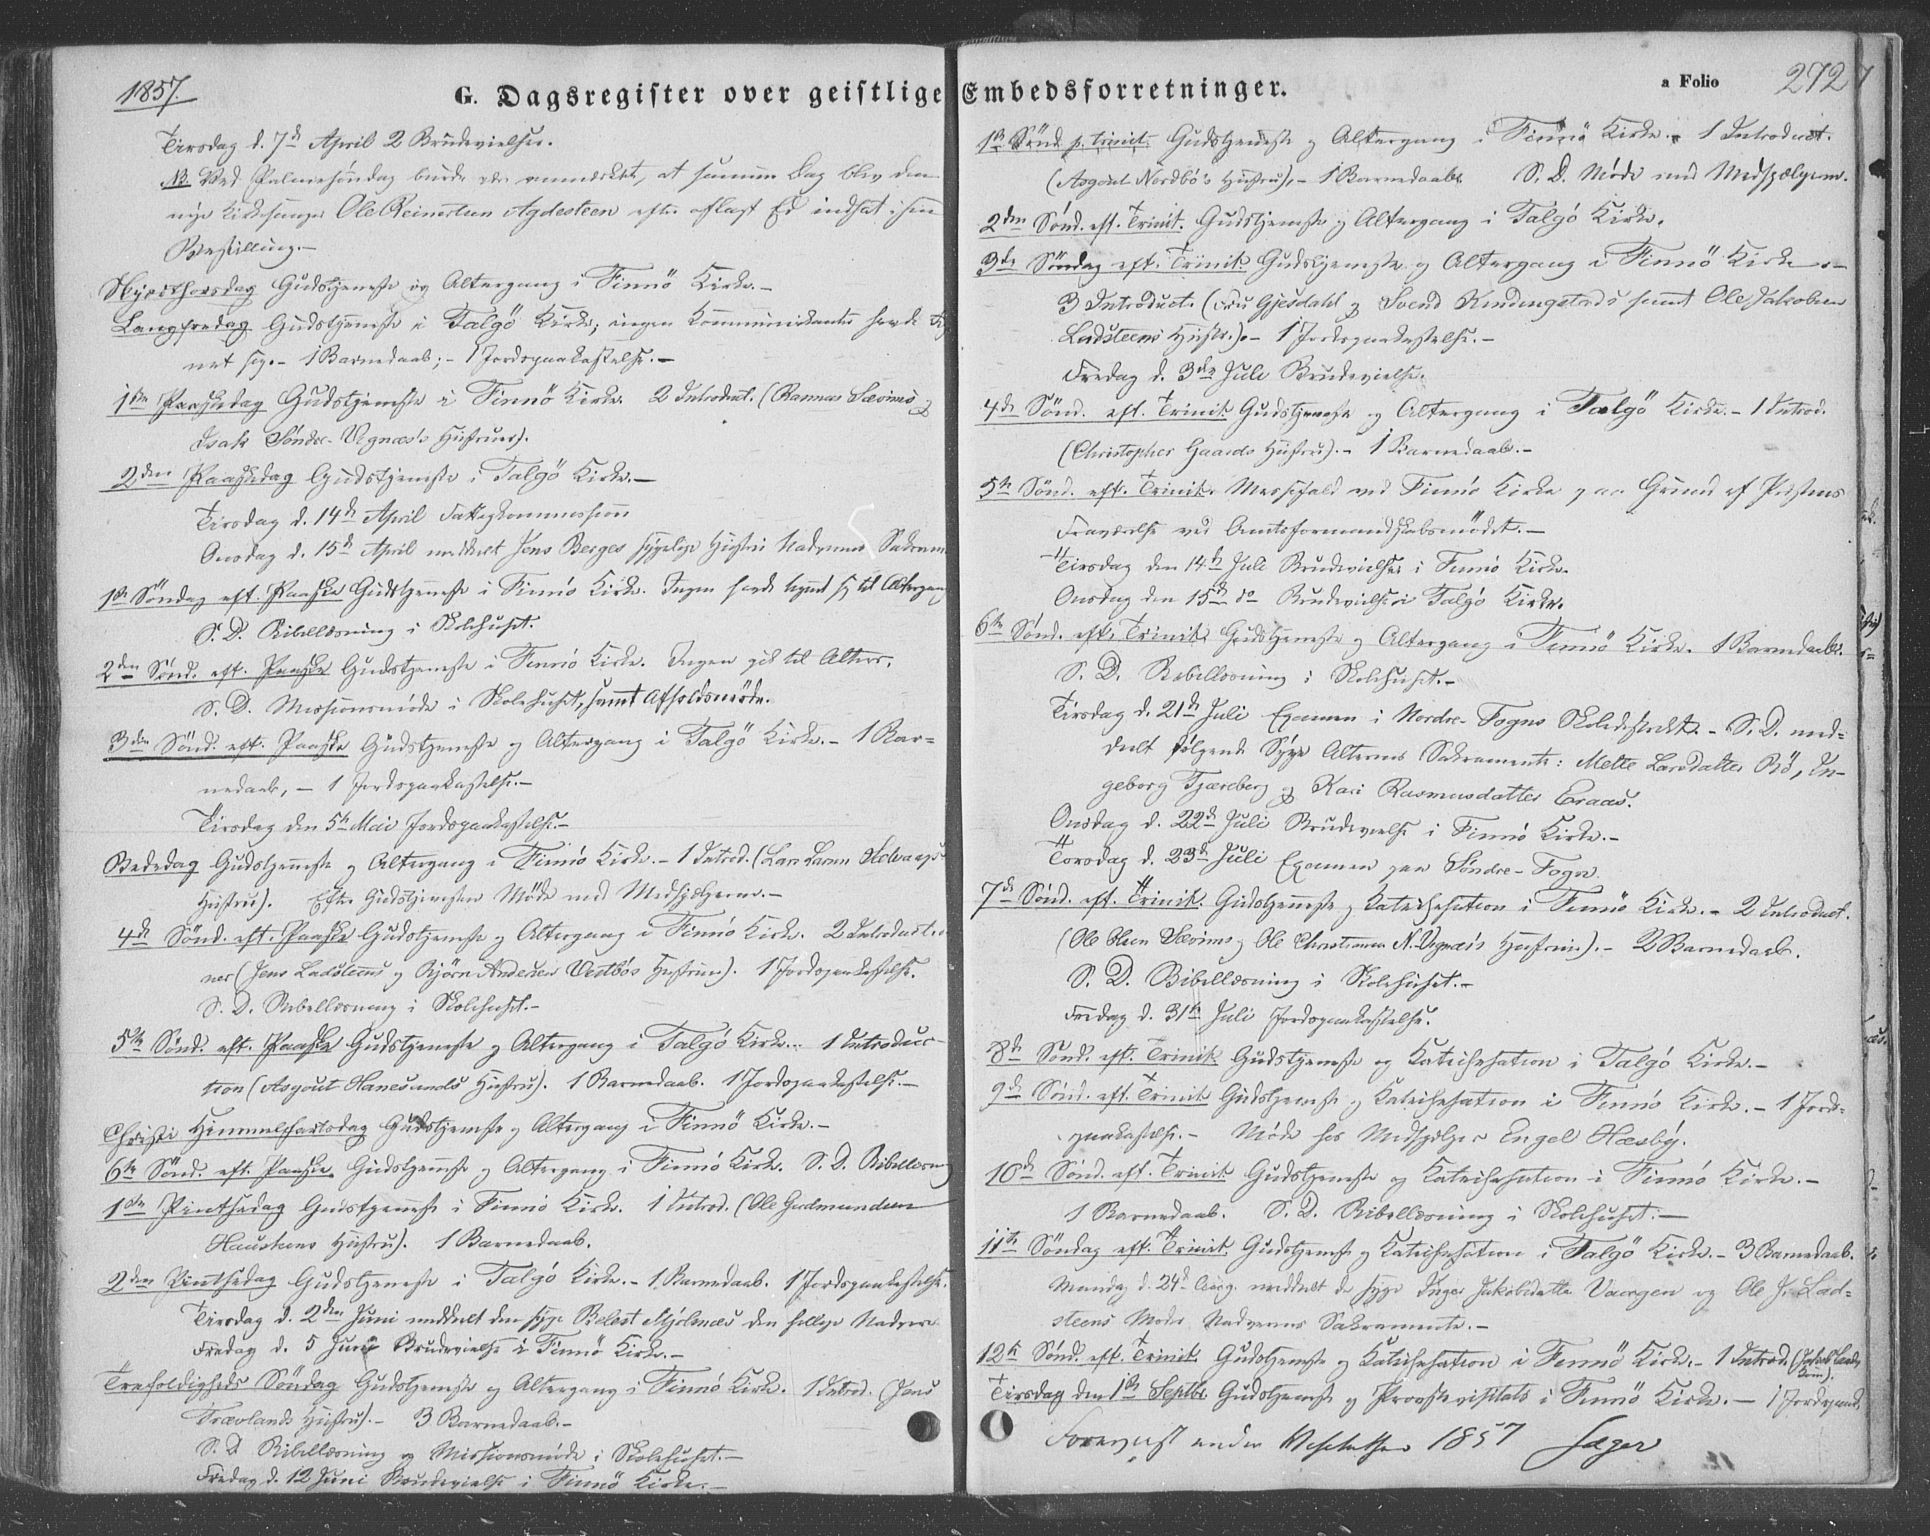 1857.
G. Dagsregister over geistlige Embedsforretninger.
a Folio 292
Tirsdag d. 7de April 2 Brudevielser.
NB. Ved Palmesøndag burde være anmærket, at samme Dag blev den
nye Kirkesanger Ole Reinertsen Agdesteen efter aflagt Ed indsat i sin
Bestilling.-
Skjærthorsdag Gudstjeneste og Altergang i Finnö Kirke.-
Langfredag Gudstjeneste i Talgö Kirke; ingen Kommunikanter havde teg
net sig.- 1 Barnedaab; - 1 Jordspaakastelse.-
1ste Paaskedag Gudstjeneste i Finnö Kirke. 2 Introduct. (Rasmus Sævims og
Isak Søndre-Vignæs's Hustruer).
2den Paaskedag Gudstjeneste i Talgö Kirke.-
Tirsdag d. 14de April Fattigkommission
Onsdag d. 15de April meddelt Jens Berges sygelige Hustru Nadverens Sakram.
1ste Söndag eft. Paaske Gudstjeneste i Finnö Kirke. Ingen havde tegnet sig til Altergang
S. D. Bibellæsning i Skolehuset.
2den Sönd. eft. Paaske Gudstjeneste i Finnö Kirke. Ingen gik til Alters.
S. D. Missionsmöde i Skolehuset, samt Afholdsmöde.
3die Sönd. eft. Paaske Gudstjeneste og Altergang i Talgö Kirke.- 1 Bar=
nedaab, - 1 Jordspaakastelse.-
Tirsdag den 5te Mai Jordspaakastelse.-
Bededag Gudstjeneste og Altergang i Finnö Kirke.- 1 Introd. (Lars Larsen
Hustru). Efter Gudstjenesten Möde med Medhjelperne.-
4de Sönd. eft. Paaske Gudstjeneste og Altergang i Finnö Kirke. 2 Introductio
ner (Jens Ladsteens og Björn Andersen Vestbös Hustruer). 1 Jordspaakastelse.
S. D. Bibellæsning i Skolehuset.-
5te Sönd. eft. Paaske Gudstjeneste og Altergang i Talgö Kirke. 1 Introduc-
tion (Asgout Hanesunds Hustru). 1 Barnedaab. 1 Jordspaakastelse.-
Christi Himmelfartsdag Gudstjeneste og Altergang i Finnö Kirke.-
6te Sönd. eft. Paaske Gudstjeneste og Altergang i Finnö Kirke. S. D. Bibellæsning
1ste Pintsedag Gudstjeneste i Finnö Kirke. 1 Introd. (Ole Gudmundsen
Haugens Hustru). 1 Barnedaab.
2den Pintsedag Gudstjeneste i Talgö Kirke.- 1 Barnedaab. 1 Jordspaakastelse.
Tirsdag d. 2den Juni meddelt den syge Belest Mjölsnæs den hellige Nadvere
Fredag d. 5 Juni Brudevielse i Finnö Kirke.-
Trefoldigheds Söndag Gudstjeneste og Altergang i Finnö Kirke. 1 Introd. (Jens
Hustru).- 3 Barnedaab.-
S. D. Bibellæsning og Missionsmöde i Skolehuset.-
Fredag d. 12 Juni Brudevielse i Finnö Kirke.-
1ste Sönd p. Trinit. Gudstjeneste og Altergang i Finnö Kirke.- 1 Introduct.
(Asgout Nordbö's Hustru),- 1 Barnedaab. S. D. Möde med Medhjælpern.
2den Sönd. eft. Trinit. Gudstjeneste og Altergang i Talgö Kirke.
3die Söndag eft. Trinit. Gudstjeneste og Altergang i Finnö Kirke.-
3 Introduct. (Fru Gjesdahl og Svend Kindingstads samt Ole Jakobsen
Ladsteens Hustr.).- 1 Jordspaakastelse.-
Fredag d. 3die Juli Brudevielse.
4de Sönd. eft. Trinit. Gudstjeneste og Altergang i Talgö Kirke.- 1 Introd.
(Christopher Gaards Hustru).- 1 Barnedaab.-
5te Sönd. eft. Trinit. Messefald ved Finnö Kirke paa Grund af Prestens
Fraværelse ved Amtsformandskabsmödet.-
Tirsdag den 14de Juli Brudevielser i Finnö Kirke.
Onsdag den 15de do Brudevielse i Talgö Kirke.
6te Sönd. eft. Trinit. Gudstjeneste og Altergang i Finnö Kirke. 1 Barnedaab.
S. D. Bibellæsning i Skolehuset.-
Tirsdag d. 21de Juli Examen i Nordre-Fogns Skoledistrikt.- S. D. med=
deelt fölgende Syge Alterens Sakramente: Mette Larsdatter Bö, In-
geborg Tjæreberg og Kari Rasmusdatter Eraas.
Onsdag d. 22de Juli Brudevielse i Finnö Kirke.-
Torsdag d. 23de Juli Examen paa Söndre-Fogn.
7de Sönd. eft. Trinit. Gudstjeneste og Katechisation i Finnö Kirke.- 2 Introduct.
(Ole Olsen Sævims og Ole Christensen N.-Vignæs's Hustruer).- 2 Barnedaab.
S. D. Bibellæsning i Skolehuset.-
Fredag d. 31te Juli Jordspaakastelse.
8de Sönd. eft. Trinit. Gudstjeneste og Katechisation i Talgö Kirke.-
9de Sönd. eft. Trinit. Gudstjeneste og Katechisation i Finnö Kirke.- 1 Jord-
spaakastelse.- Möde hos Medhjelper Engel Hæsby.
10de Sönd. eft. Trinit. Gudstjeneste og Katechisation i Finnö Kirke.-
1 Barnedaab. S. D. Bibellæsning i Skolehuset.-
11te Söndag eft. Trinit. Gudstjeneste og Katechisation i Talgö Kirke.- 3 Barnedaab.
Mandag d. 24de Aug. meddelt de syge Inger Jakobsdatter Vaagen og Ole J. Lad-
steens Moder Nadverens Sakramente.-
12te Sönd. eft. Trinit. Gudstjeneste og Katechisation i Finnö Kirke.- 1 Introd.
Tirsdag den 1ste Septbr. Gudstjeneste og Provstevisitats i Finnö Kirke.- 1 Jordspaak.
Forevist under Visitatsen 1857